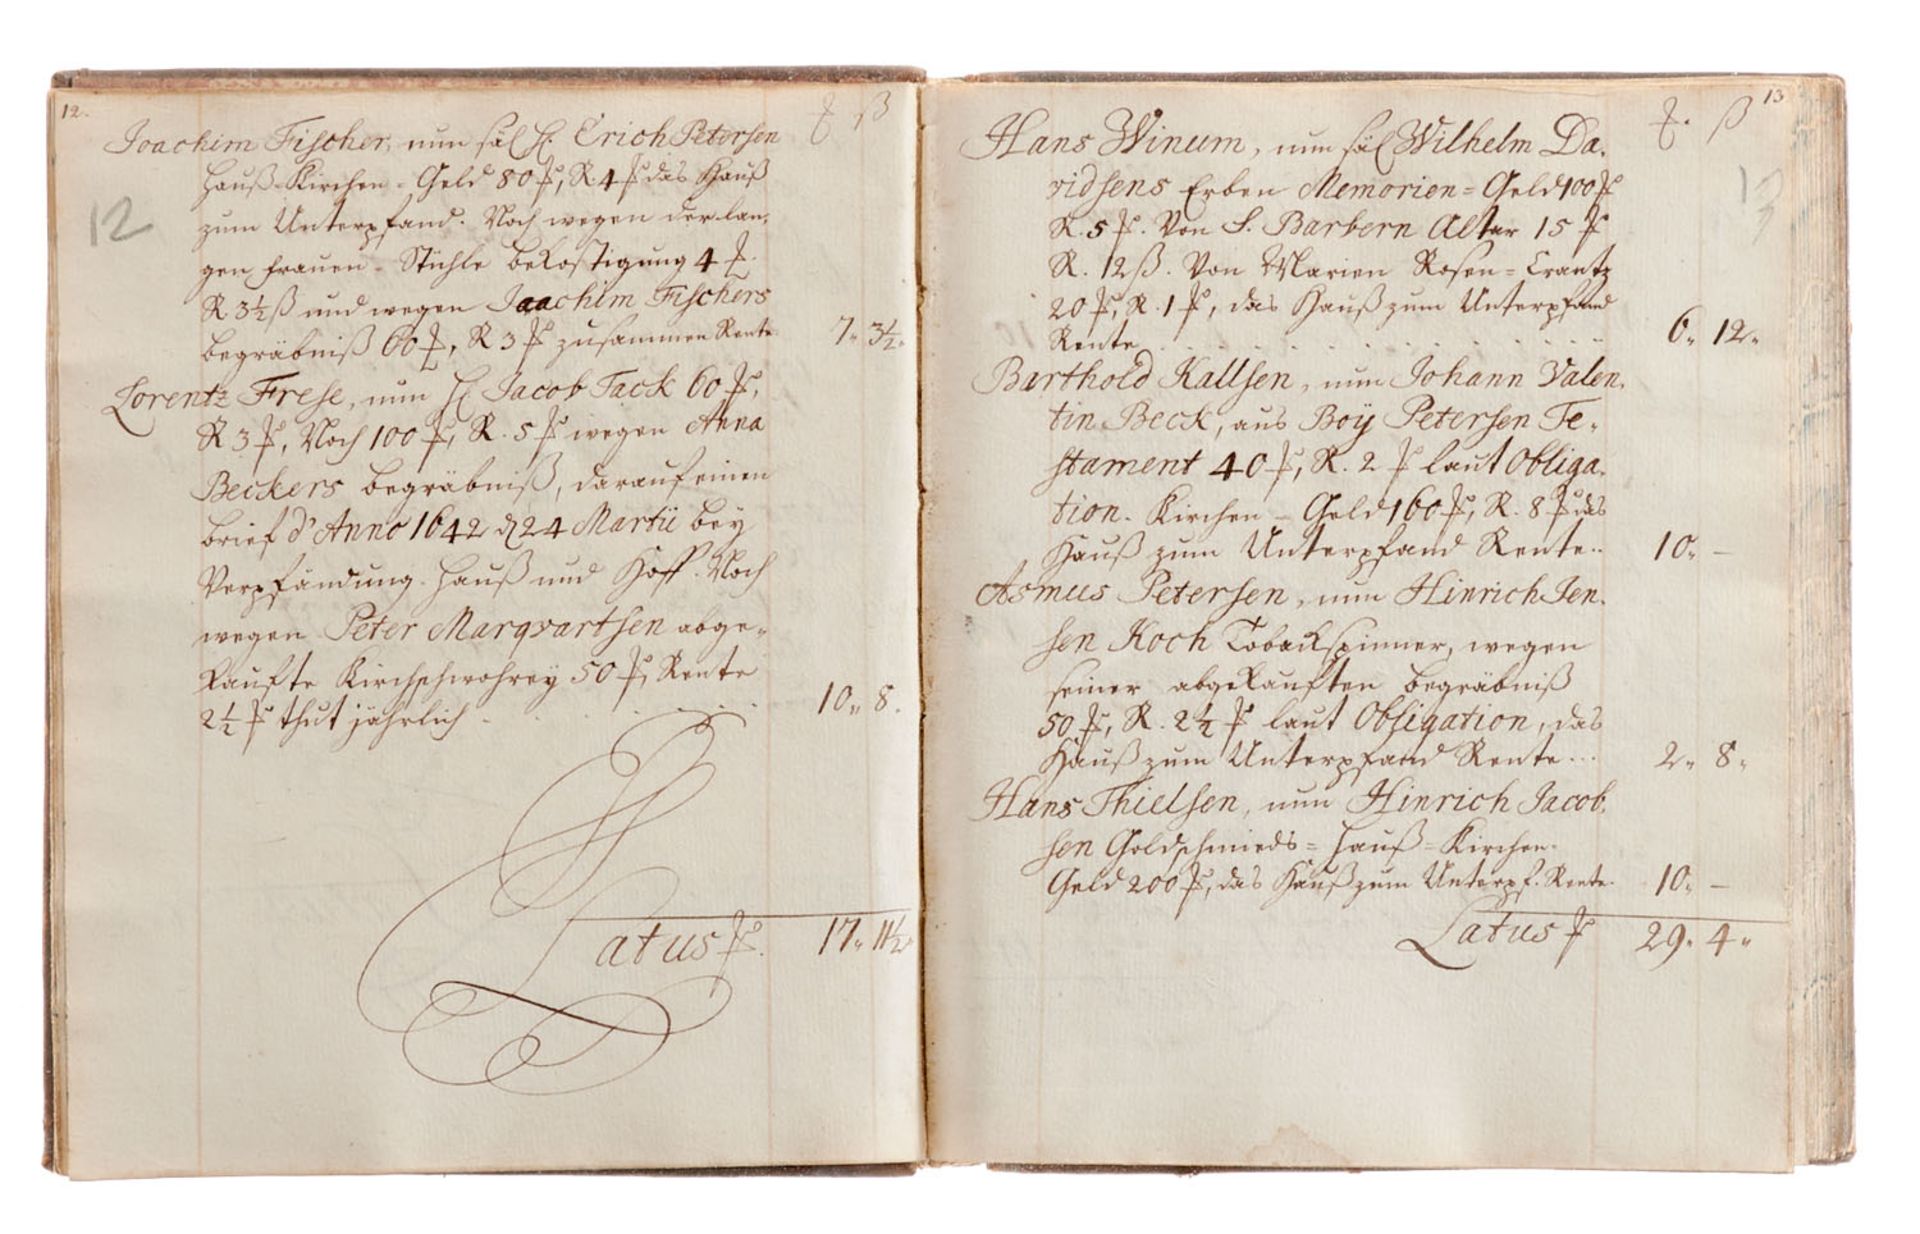 12.
₰ ß
Joachim Fischer, nun säl H. Erich Petersen
Hauß-Kirchen-Geld 80 ₰, R. 4 ₰ das Hauß
12
zum Unterpfand. Noch wegen der lan-
gen frauen-Stühle beKostigung 4 ₰.
R 3½ ß und wegen Joachim Fischers
begräbniß 60 ₰, R 3 ₰ zusammen Rente 7„ 3½„
Lorentz Frese, nun H Jacob Tack 60 ₰,
R 3 ₰, Noch 100 ₰, R. 5 ₰ wegen Anna
Beckers begräbniß, darauf einen
brief d' Anno 1642 d 24 Martii bey
Verpfändung Hauß und Hoff. Noch
wegen Peter Marqvartsen abge-
Kaufte Kirchschwohrey 50 ₰, Rente
2½ ₰ thut jährlich 10„ 8.
Latus ₰. 17„ 11½„
13
₰. ß
Hans Winum, nun säl Wilhelm Da-
13
vidsens Erben Memorien=Geld 100 ₰
R. 5 ₰. Von S. Barbern Altar 15 ₰
R. 12 ß. Von Marien Rosen=Crantz
20 ₰, R. 1 ₰, das Hauß zum Unterpfand
Rente 6„ 12„
Barthold Kallsen, nun Johann Valen-
tin Beck, aus Boÿ Petersen Te-
stament 40 ₰, R. 2 ₰ laut Obliga-
tion. Kirchen-Geld 160 ₰, R. 8 ₰ das
Hauß zum Unterpfand Rente.. 10„ –
Asmus Petersen, nun Hinrich Jen-
sen Koch Tobackspinner, wegen
seiner abgeKauften begräbniß
50 ₰, R. 2½ ₰ laut Obligation, das
Hauß zum Unterpfand Rente... 2„ 8„
Hans Thielsen, nun Hinrich Jacob-
sen Goldschmieds=Hauß=Kirchen-
Geld 200 ₰, das Hauß zum Unterpf. Rente. 10„ –
Latus ₰ 29„ 4„